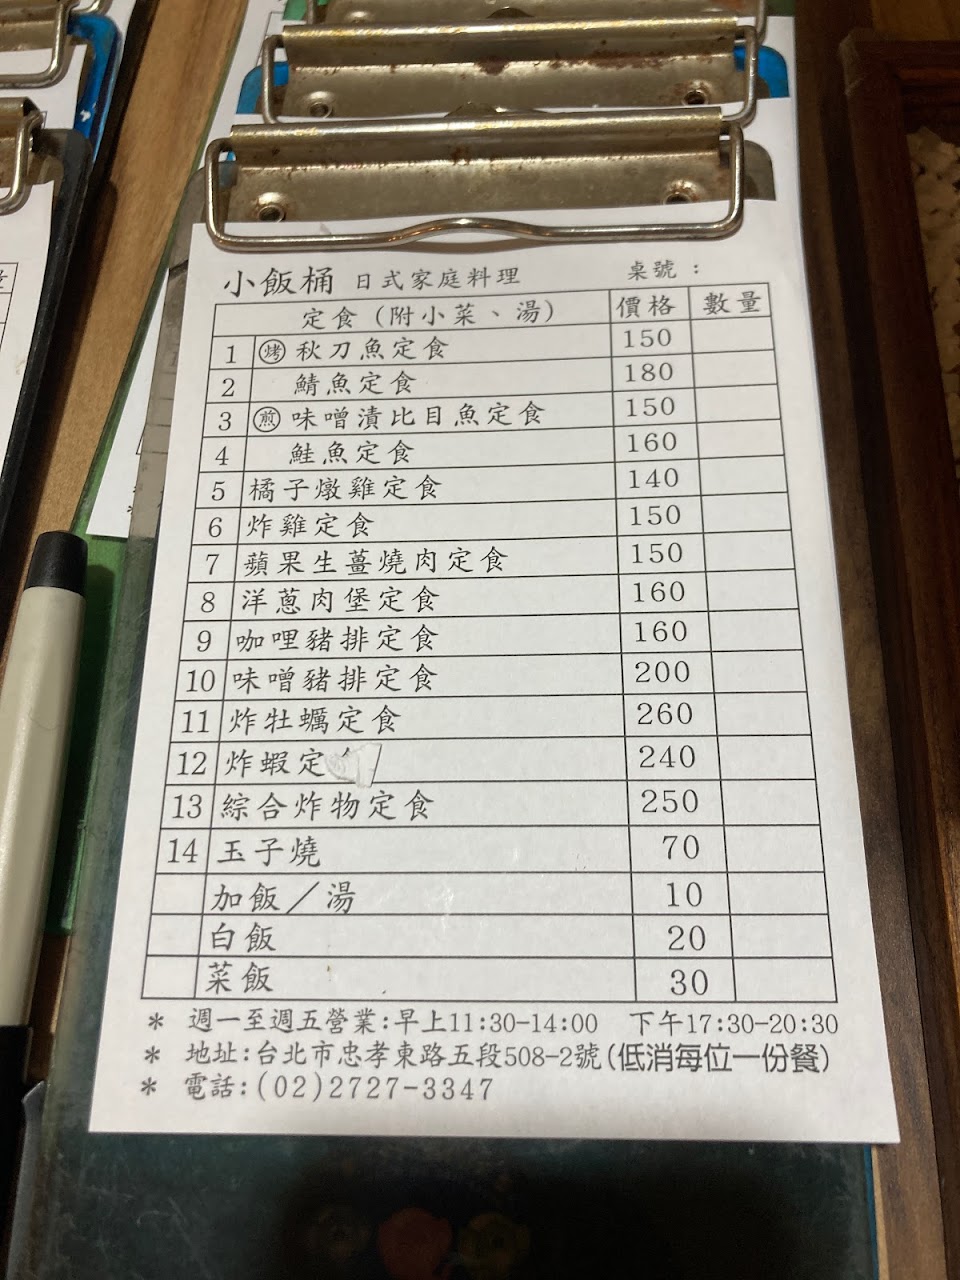 小飯桶 日式家庭料理 桌號：
定食（附小菜、湯） 價格 數量
1 烤 秋刀魚定食 150
2 鯖魚定食 180
3 煎 味噌漬比目魚定食 150
4 鮭魚定食 160
5 橘子燉雞定食 140
6 炸雞定食 150
7 蘋果生薑燒肉定食 150
8 洋蔥肉堡定食 160
9 咖哩豬排定食 160
10 味噌豬排定食 200
11 炸牡蠣定食 260
12 炸蝦定 240
13 綜合炸物定食 250
14 玉子燒 70
加飯／湯 10
白飯 20
菜飯 30
* 週一至週五營業:早上11:30-14:00 下午17:30-20:30
* 地址:台北市忠孝東路五段508-2號(低消每位一份餐)
* 電話:(02)2727-3347